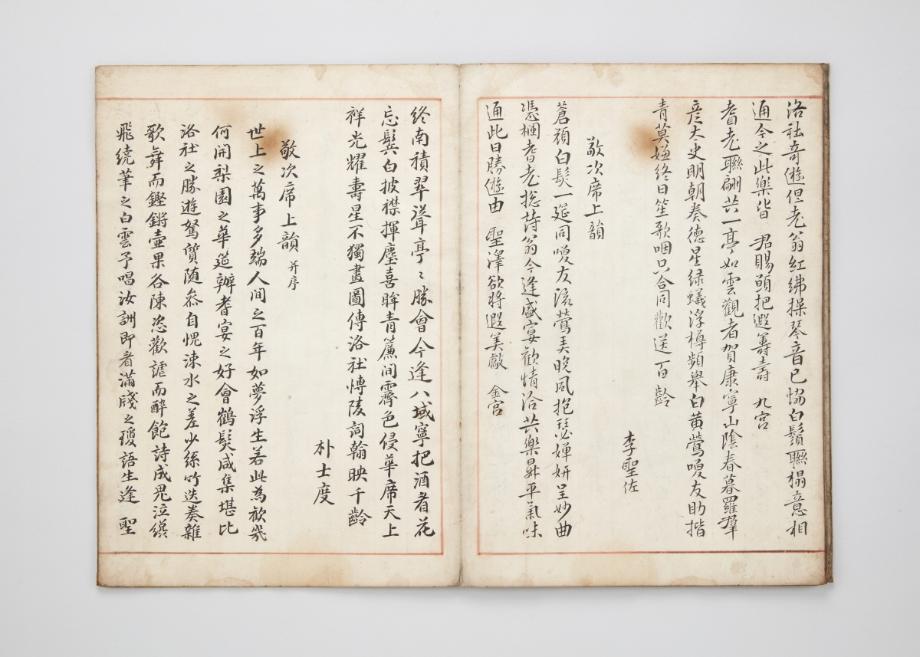 洛社奇遊但老翁紅拂操琴音已恊白鬚聯榻意相
通今之此樂皆 君賜頭把遐籌壽 九宮
耆老聯翩共一亭如雲觀者賀康寧山陰春暮羅群
彦大史明朝奏德星緑蟻浮樽頻舉白黄鶯喚友助揩
青莫嫌終日笙歌咽只合同歡送百齡
李聖佐
敬次席上韻
蒼顔白髮一筵同喚友流鶯美晚風抱瑟嬋妍呈妙曲
憑欄耆老揔詩翁今逢盛宴歡情洽共樂昇平氣味
通此日勝遊由 聖澤欲將遐美献 金宮
終南積翠聳亭〻勝會今逢八域寧把酒者花
忘鬂白披襟揮麈喜眸青簾間霽色侵華席天上
祥光耀壽星不獨畫圖傳洛社愽陵詞翰映千齡
朴士度
敬次席上韻 并序
世上之萬事多端人間之百年如夢浮生若此為歡幾
何開梨園之華筵辦耆宴之好會鶴髮咸集堪比
洛社之勝遊駑質随叅自愧涑水之差少絲竹迭奏雜
歌舞而鏗鏘壷果各陳恣歡謔而醉飽詩成鬼泣繞
飛繞筆之白雲予唱汝訓即者滿牋之瓊語生逢 聖